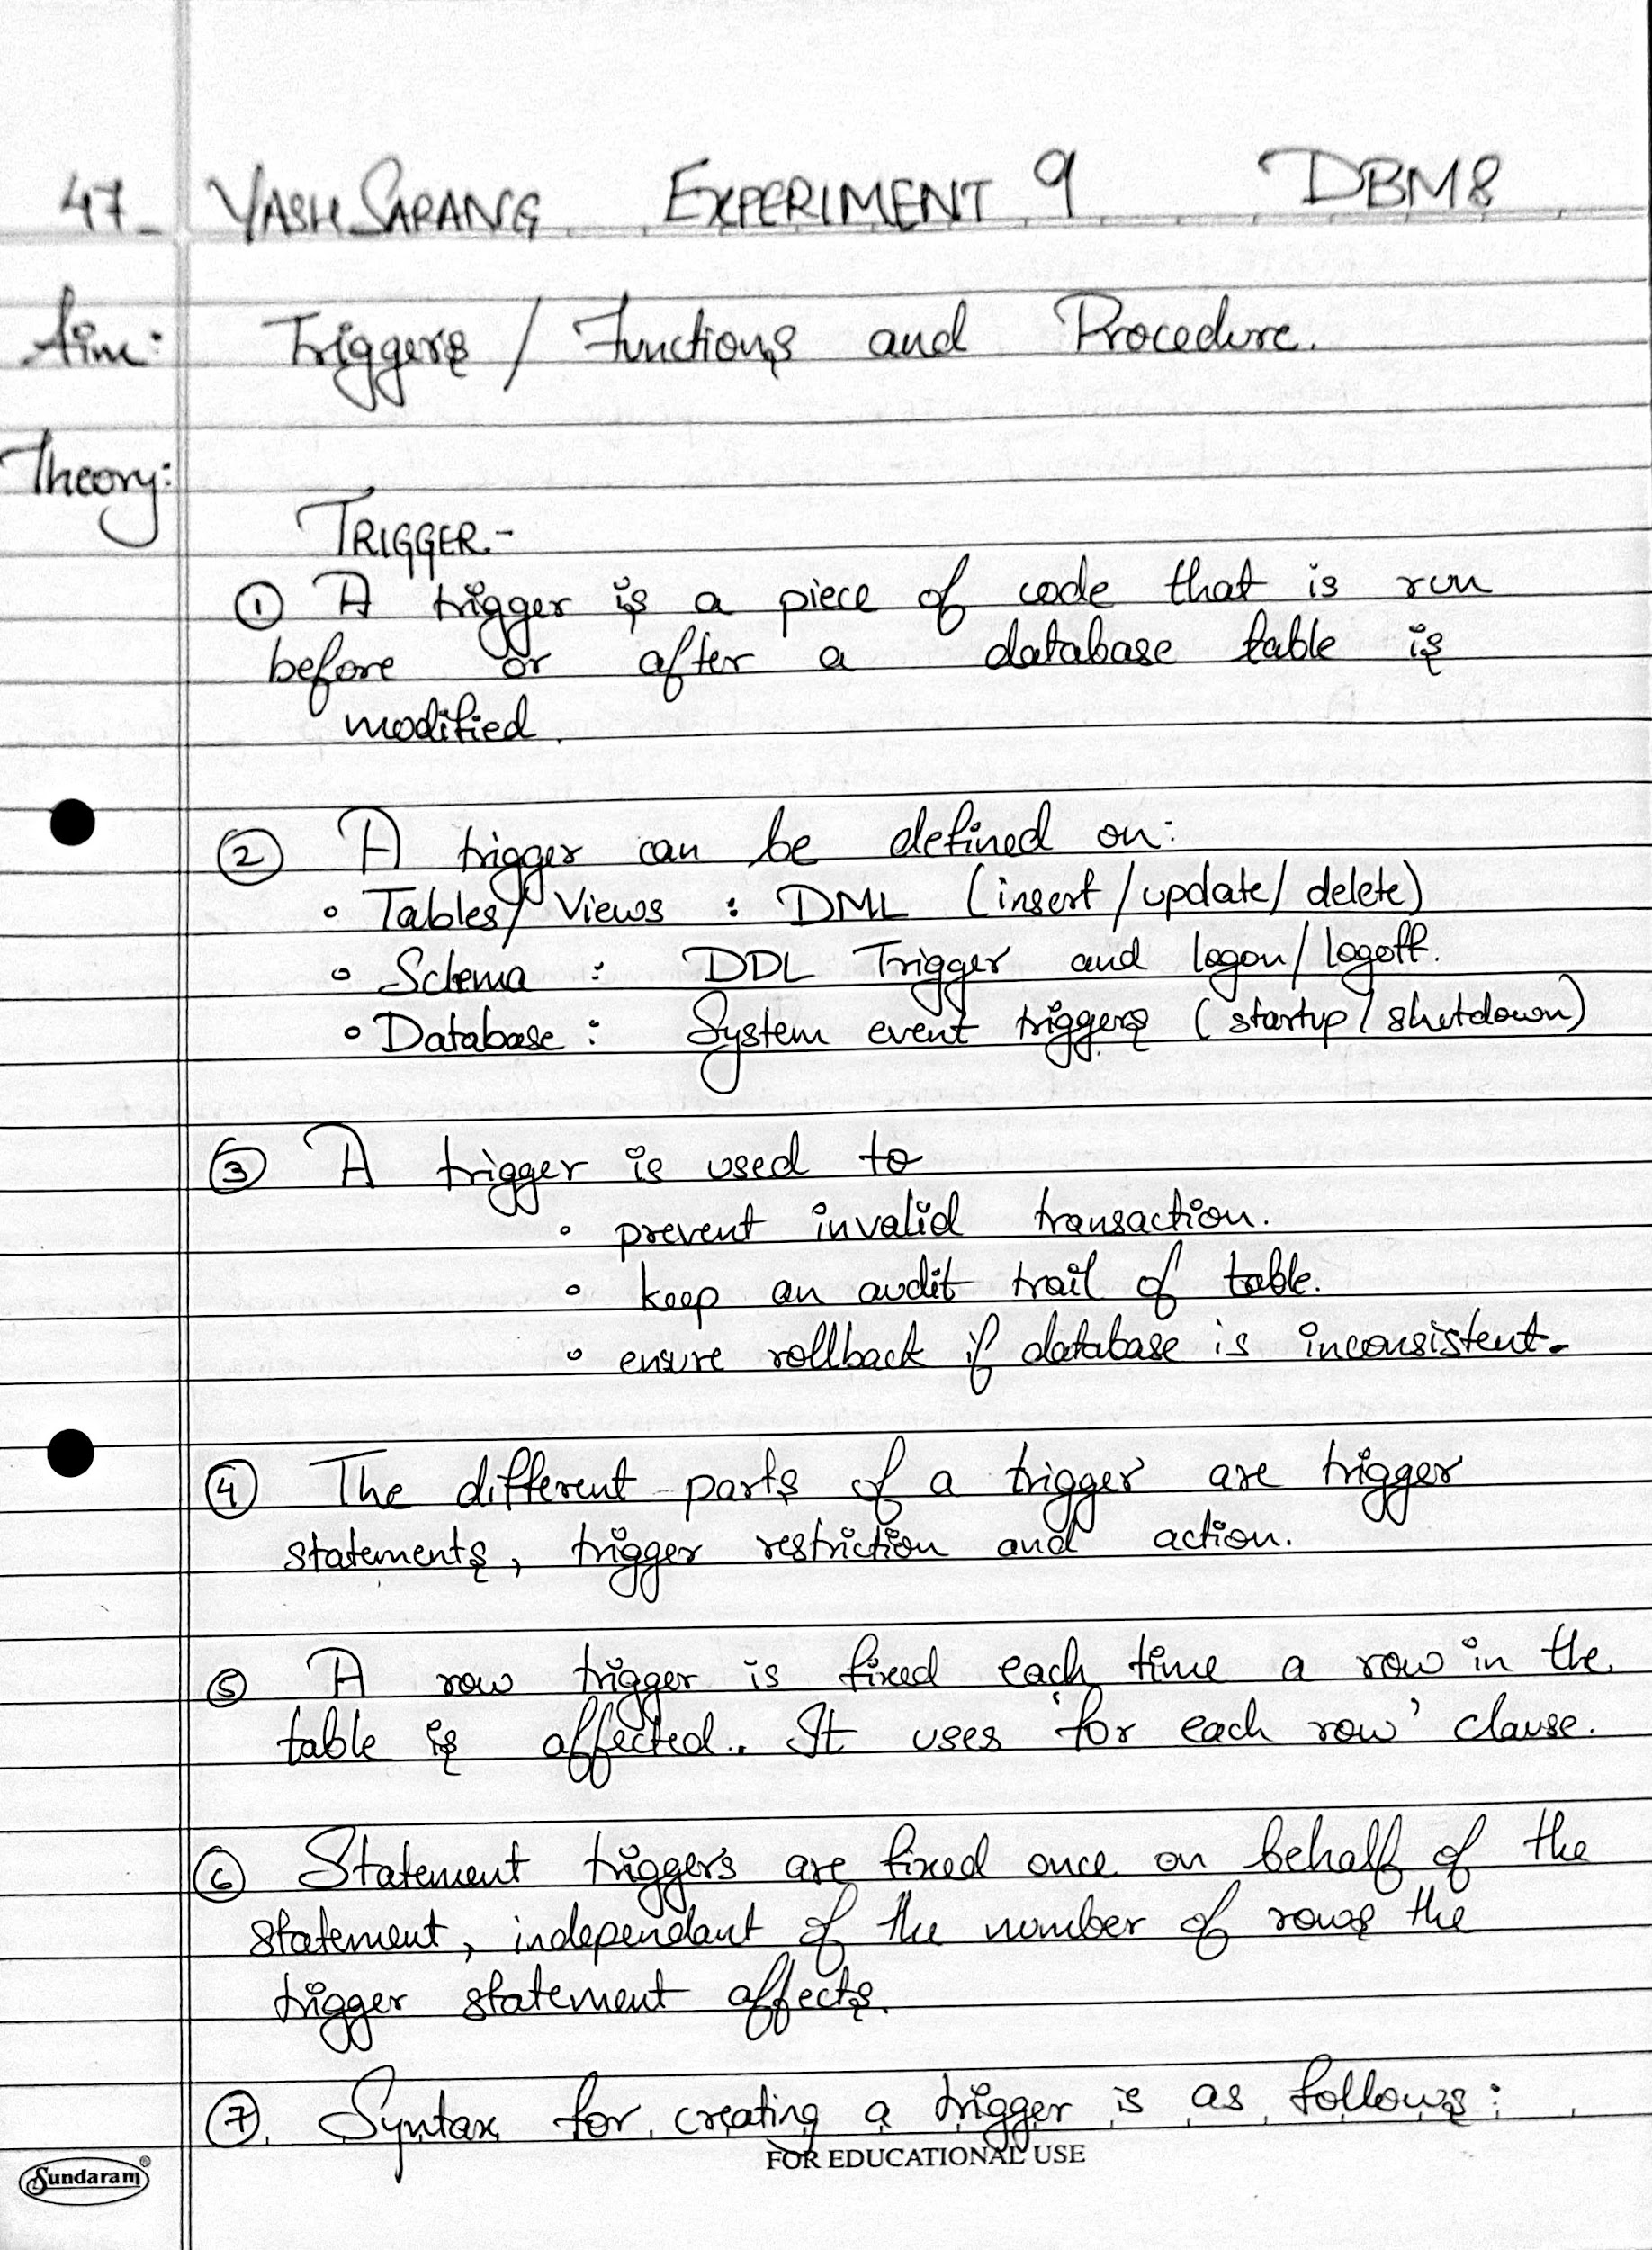 47. YASH SARANG EXPERIMENT 9 DBMS
Aim: Triggers / Functions and Procedure.
Theory:
TRIGGER:-
① A trigger is a piece of code that is run
before or after a database table is
modified.
② A trigger can be defined on:
• Tables/Views : DML (insert/update/delete)
• Schema : DDL Trigger and logon/logoff.
• Database : System event triggers (startup/shutdown)
③ A trigger is used to
• prevent invalid transaction.
• keep an audit trail of table.
• ensure rollback if database is inconsistent.
④ The different parts of a trigger are trigger
statements, trigger restriction and action.
⑤ A row trigger is fired each time a row in the
table is affected. It uses 'for each row' clause.
⑥ Statement triggers are fired once on behalf of the
statement, independant of the number of rows the
trigger statement affects.
⑦ Syntax for creating a trigger is as follows:
FOR EDUCATIONAL USE
Sundaram®